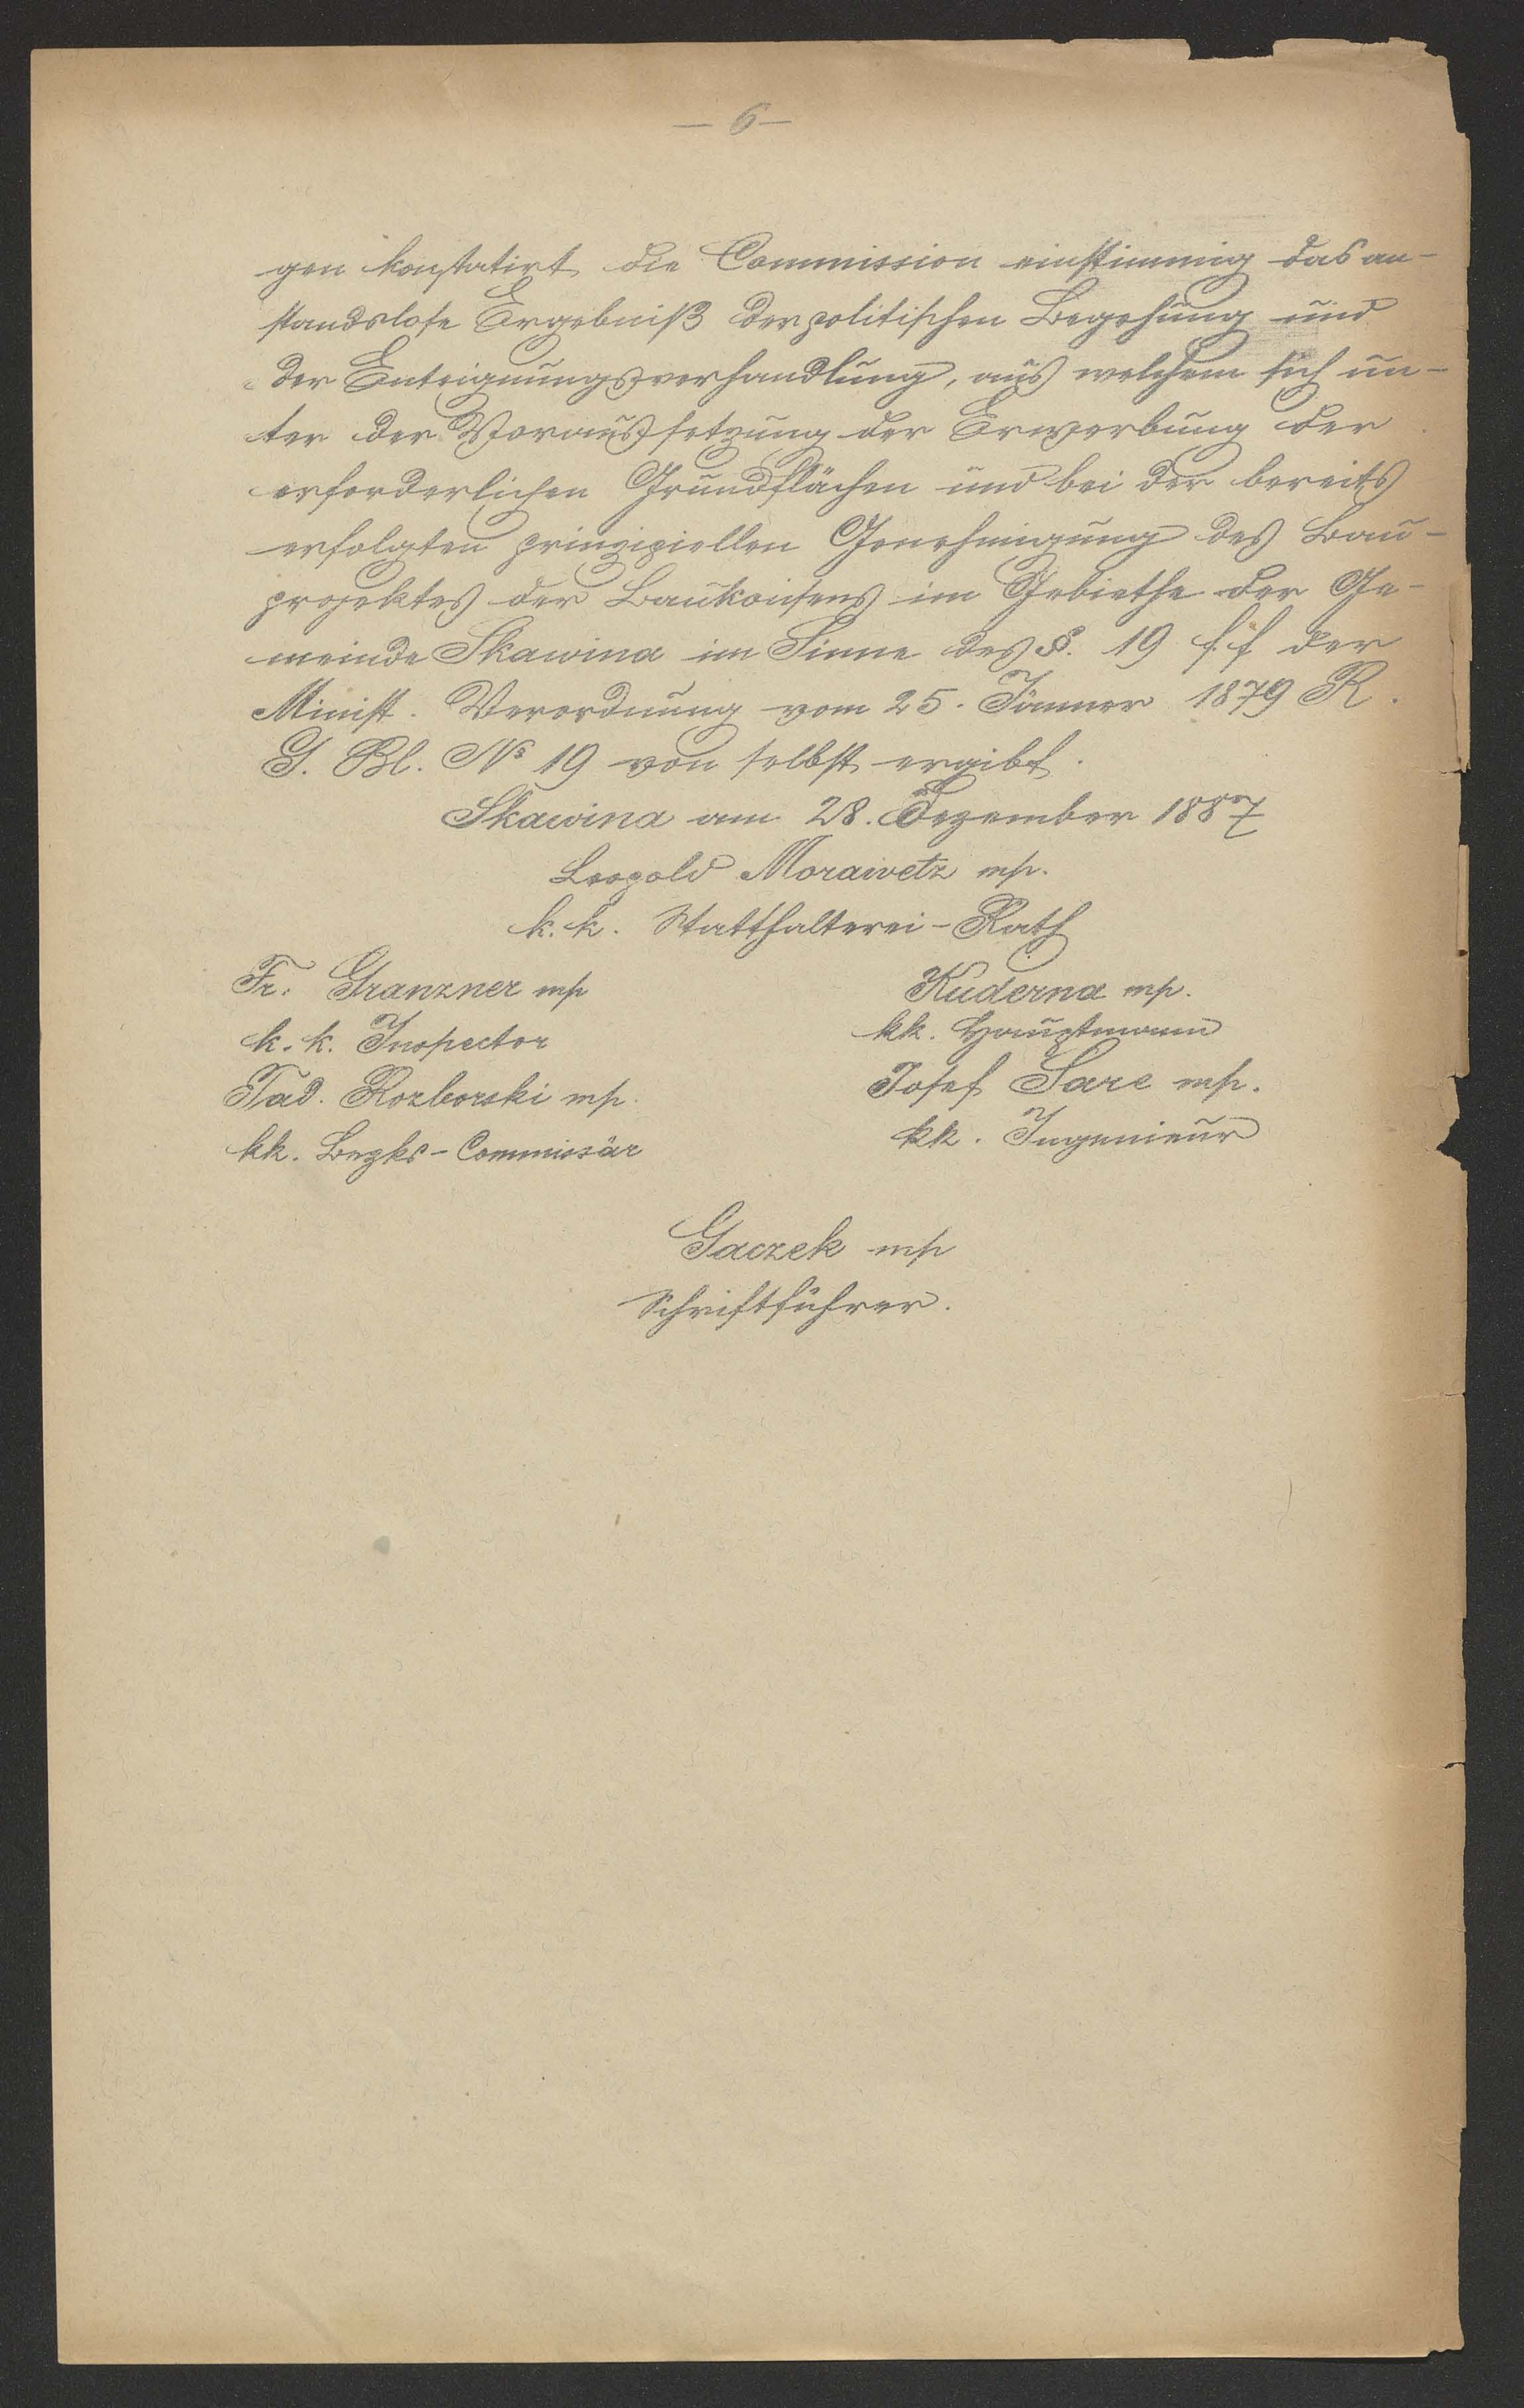 — 6 —
gen konstatirt die Commission einstimmig das an-
standslose Ergebniß der politischen Begehung und
der Enteignungsverhandlung, aus welchem sich un-
ter der Voraussetzung der Erwerbung der
erforderlichen Grundflächen und bei der bereits
erfolgten prinzipiellen Genehmigung des Bau-
projektes der Baukonsens im Gebiethe der Ge-
meinde Skawina im Sinne des §. 19 f.f der
Minist. Verordnung vom 25. Jänner 1879 R.
G. Bl. Nº 19 von selbst ergibt.
Skawina am 28. Dezember 1887
Leopold Morawetz mp.
k. k. Statthalterei-Rath
Fr. Granzner mp
Kuderna mp.
k. k. Inspector
kk. Hauptmann
Tad. Rozborski mp.
Josef Sare mp.
kk. Bezks-Commissär
kk. Ingenieur
Gaczek mp
Schriftführer.